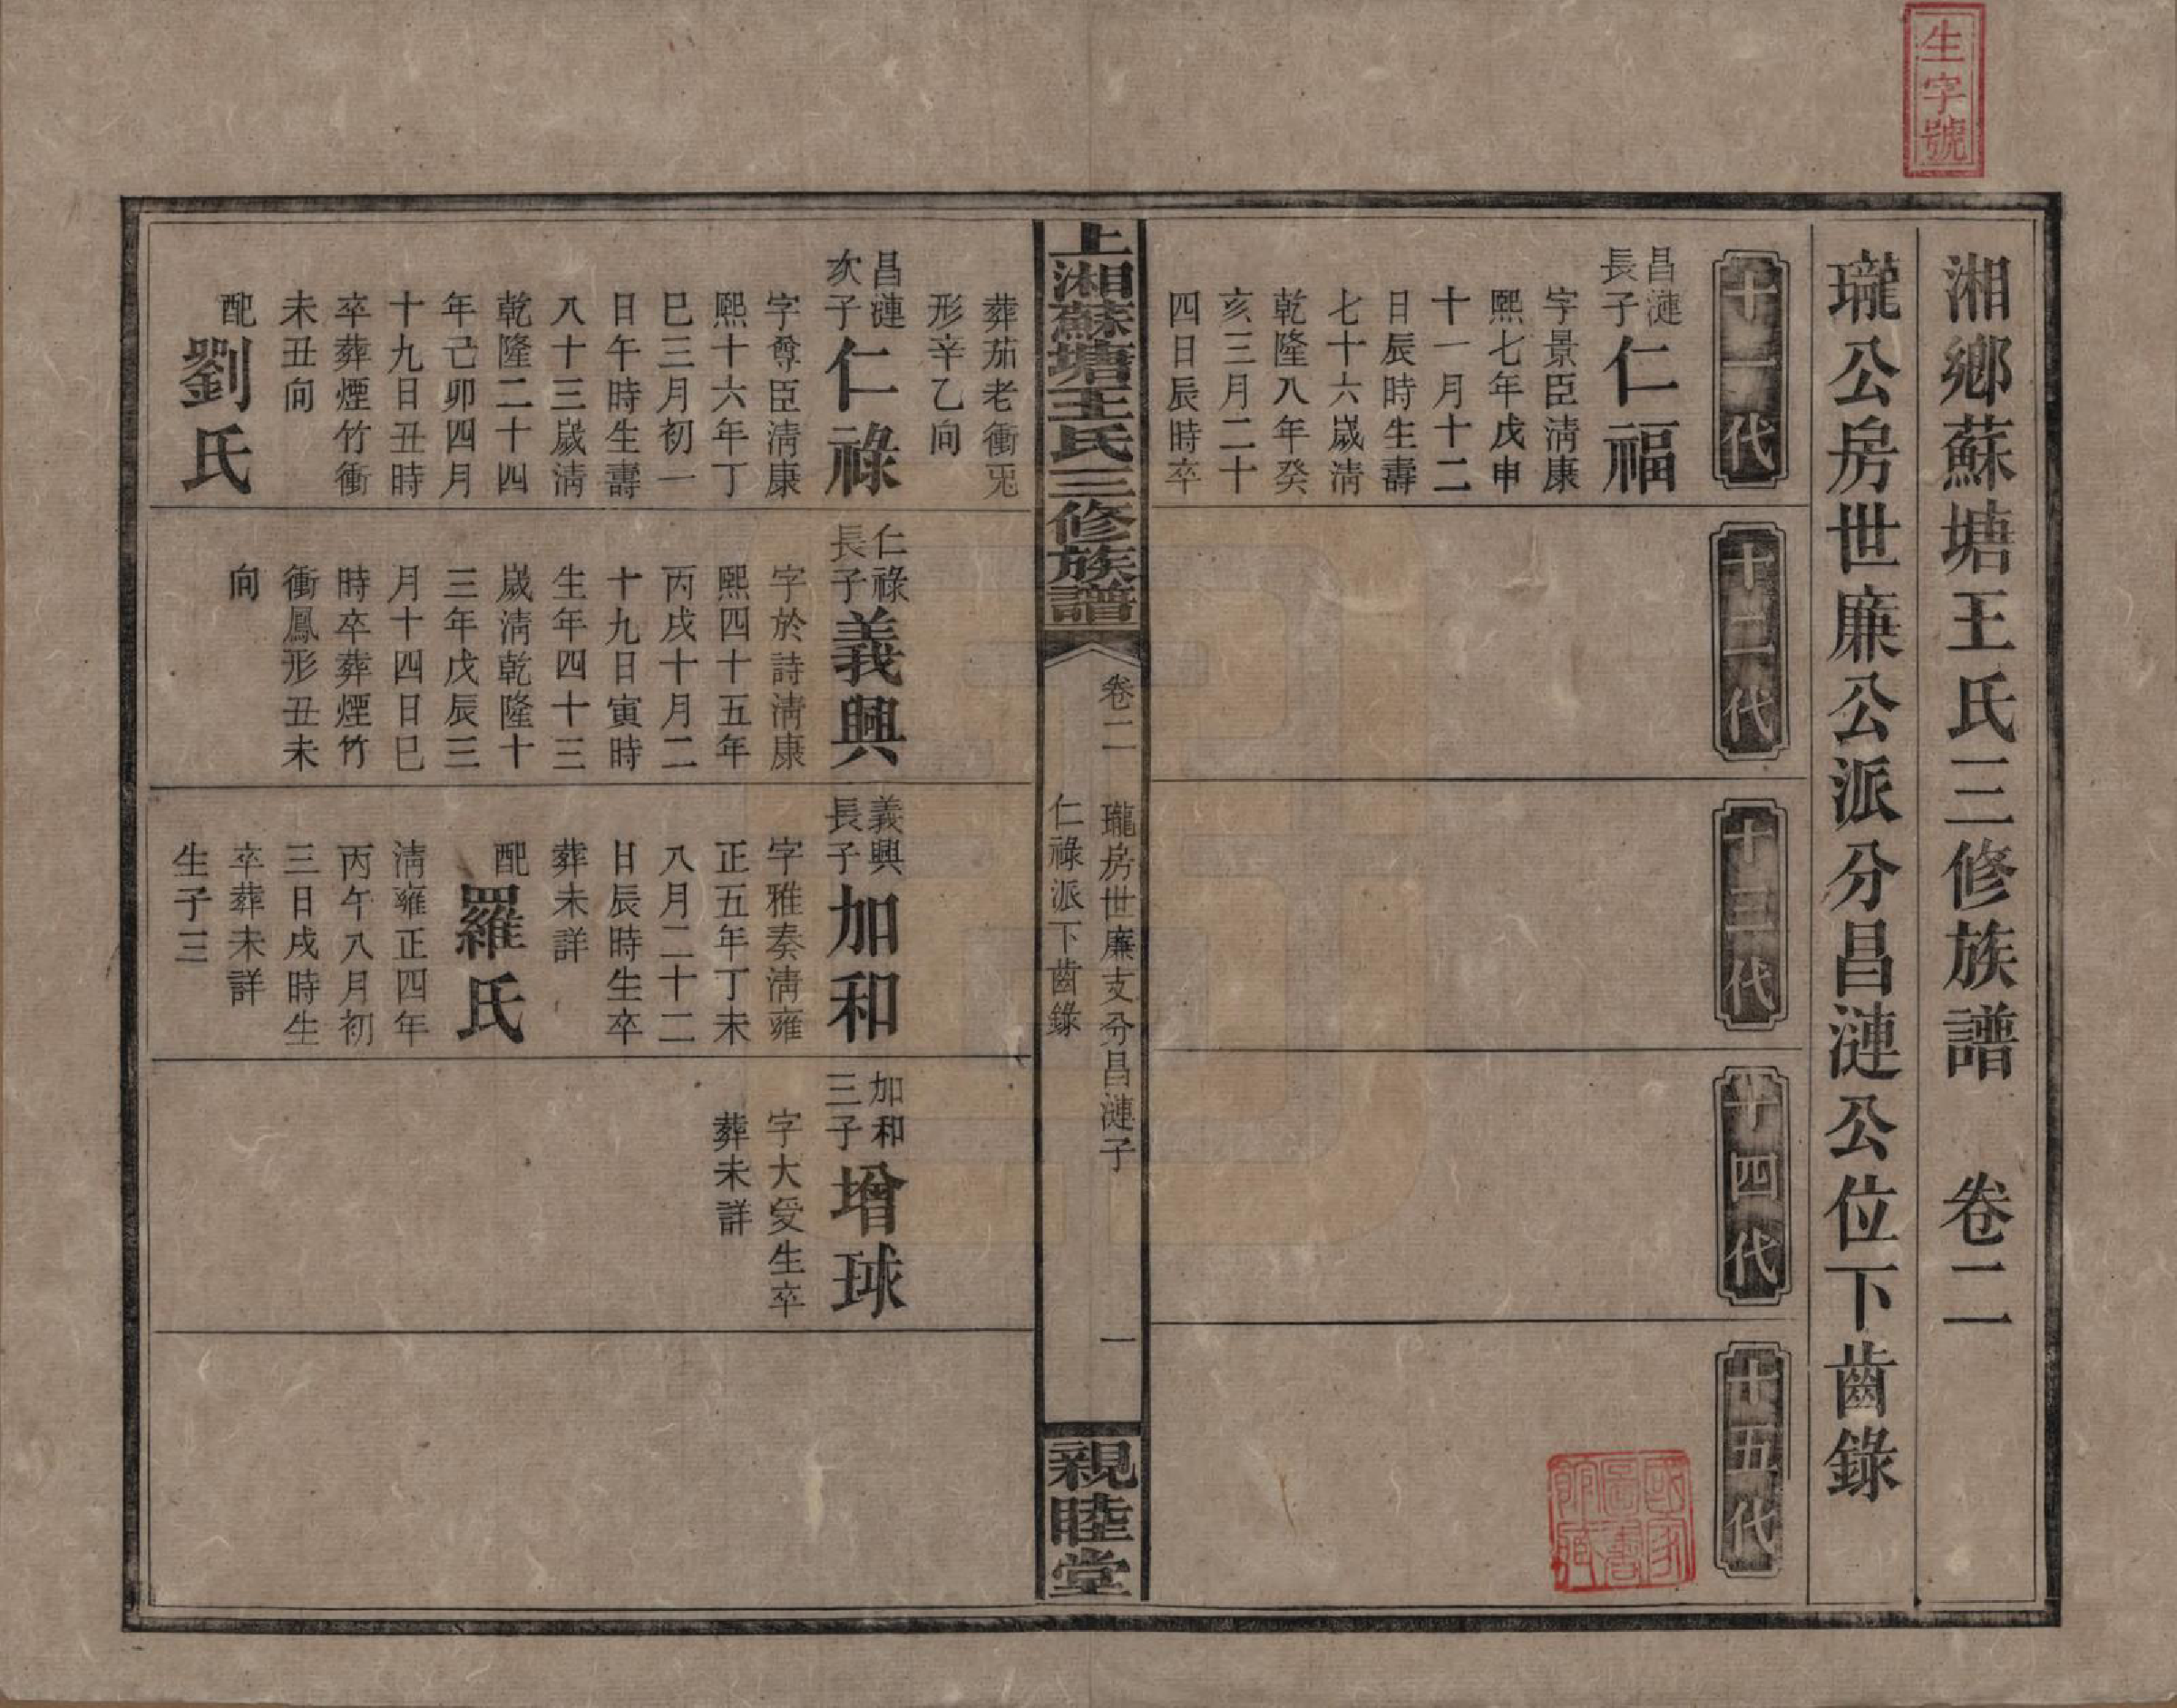 生字號
湘鄉蘇塘王氏三修族譜 卷二
瓏公房世廉公派分昌漣公位下齒錄
十一代
十二代
十三代
十四代
十五代
昌漣
長子
仁福
字景臣清康
熙七年戊申
十一月十二
日辰時生壽
七十六歲清
乾隆八年癸
亥三月二十
四日辰時卒
國家
圖書
館藏
上湘蘇塘王氏三修族譜
卷二 瓏房世廉支分昌漣子 一
仁祿派下齒錄
親睦堂
葬茄老衝兎
形辛乙向
昌漣
次子
仁祿
字尊臣清康
熙十六年丁
巳三月初一
日午時生壽
八十三歲清
乾隆二十四
年己卯四月
十九日丑時
卒葬煙竹衝
未丑向
配劉氏
仁祿
長子
義興
字於詩清康
熙四十五年
丙戌十月二
十九日寅時
生年四十三
歲清乾隆十
三年戊辰三
月十四日巳
時卒葬煙竹
衝鳳形丑未
向
義興
長子
加和
字雅奏清雍
正五年丁未
八月二十二
日辰時生卒
葬未詳
配羅氏
清雍正四年
丙午八月初
三日戌時生
卒葬未詳
生子三
加和
三子
增球
字大受生卒
葬未詳